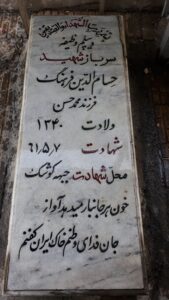 سرباز شهید
حسام الدین فرهنگ
فرزند محمد حسن
ولادت ۱۳۴۰
شهادت ۶۱،۵،۷
محل شهادت جبهه کوشک
خون هر جانباز میدهد آواز
جان فدای وطنم خاک ایران کفنم